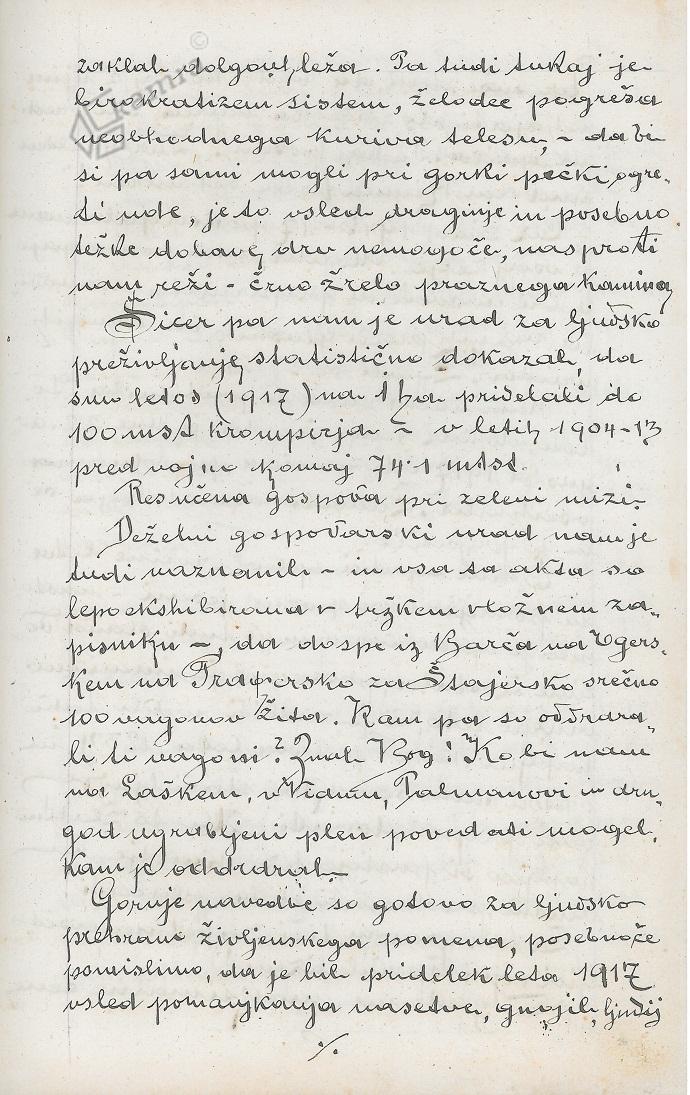 zaklal dolgouh, leža. Pa tudi tukaj je
birokratizem sistem, želodec pogreša
neobhodnega kuriva telesu, - da bi
si pa sami mogli pri gorki pečki ogre-
ti ude, je to vsled draginje in posebno
težke dobave drv nemogoče, nasproti
nam reži - črno žrelo praznega kamina,
Sicer pa nam je urad za ljudsko
preživljanje statistično dokazal, da
smo letos (1917) na 1 ha pridelali do
100 mst krompirja - v letih 1904-13
pred vojno komaj 74·1 mtst.
Resnčena gospoda pri zeleni mizi.
Deželni gospodarski urad nam je
tudi naznanil - in vsa ta akta so
lepo ekshibirana v tržkem vložnem za-
pisniku -, da dospe iz Barča na Ogers-
kem na Pragersko za Štajersko srečno
100 vagonov žita. Kam pa so oddrdra-
li ti vagoni? Znal Bog! Ko bi nam
na Laškem, v Vidmu, Palmanovi in dru-
god ugrabljeni plen povedati mogel,
kam je oddrdral.
Gornje navedbe so gotovo za ljudsko
prehrano življenskega pomena, posebno če
pomislimo, da je bil pridelek leta 1917
vsled pomanjkanja nasetve, gnojil, ljudij
./.
kamra ©